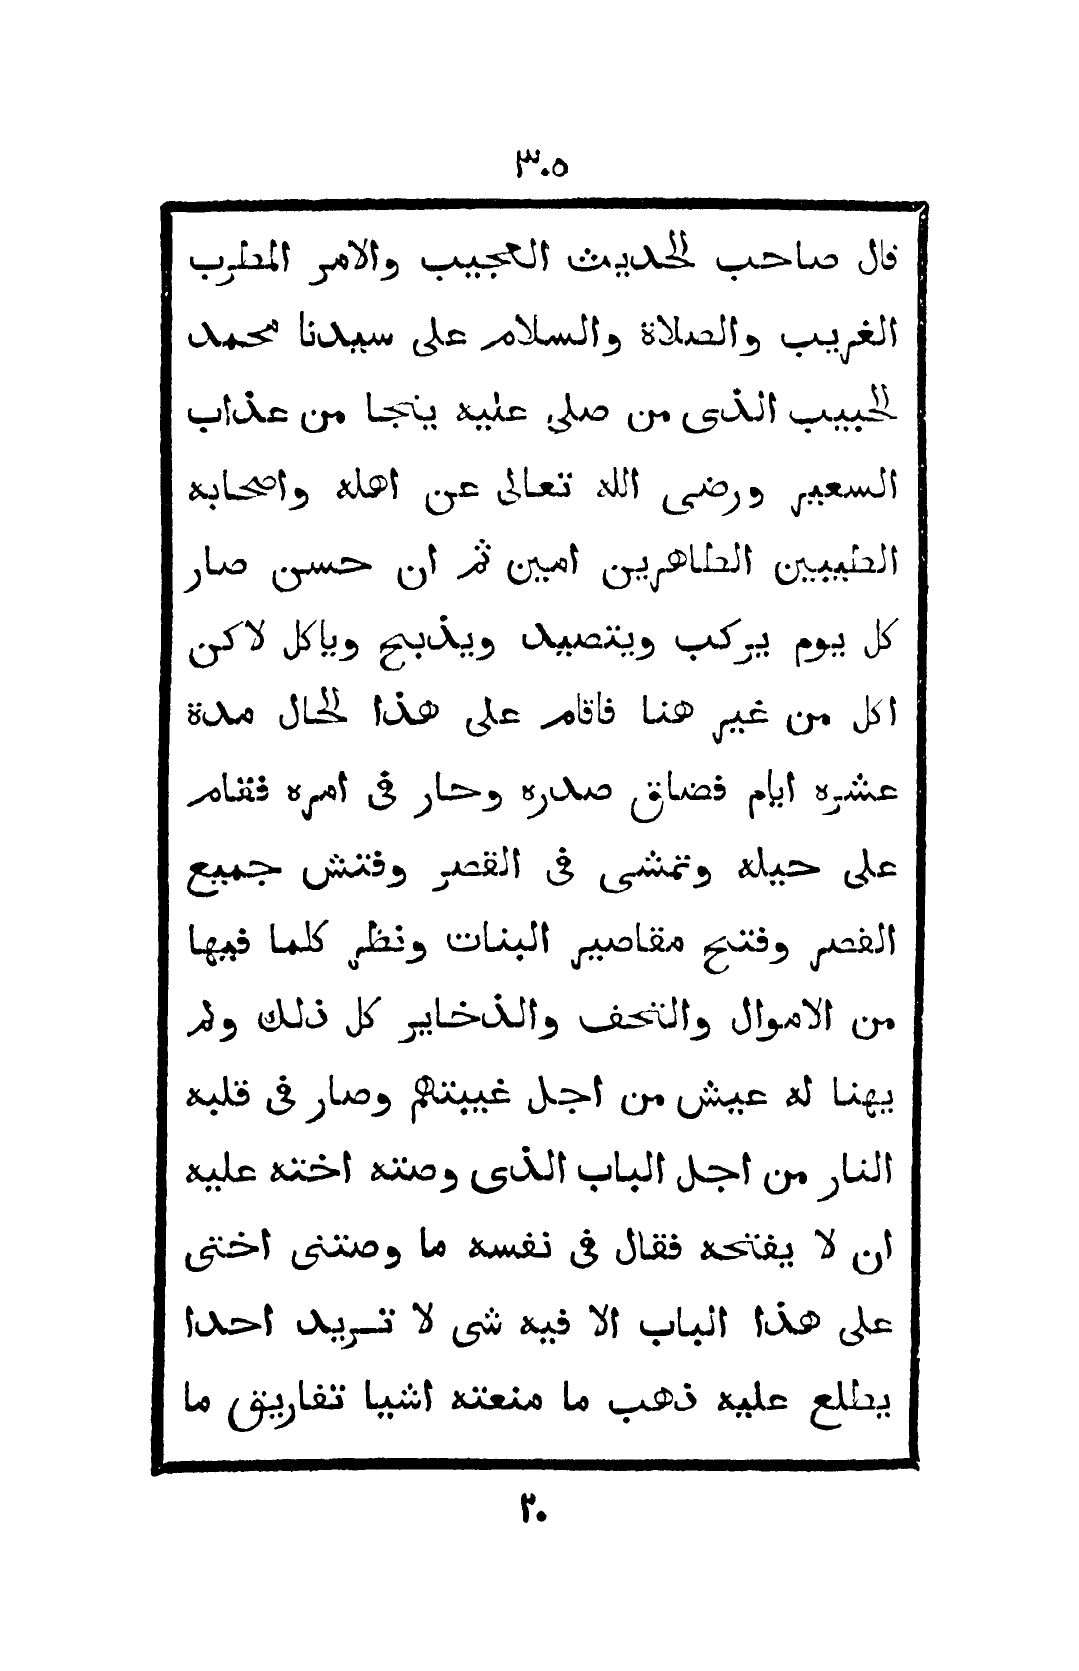 ٣٠٥
قال صاحب الحديث العجيب والامر المطرب
الغريب والصلاة والسلام على سيدنا محمد
الحبيب الذى من صلى عليه ينجا من عذاب
السعير ورضى الله تعالى عن اهله واصحابه
الطيبين الطاهرين امين ثم ان حسن صار
كل يوم يركب ويتصيد ويذبح وياكل لاكن
اكل من غير هنا فاقام على هذا الحال مدة
عشره ايام فضاق صدره وحار فى امره فقام
على حيله وتمشى فى القصر وفتش جميع
القصر وفتح مقاصير البنات ونظر كلما فيها
من الاموال والتحف والذخاير كل ذلك ولم
يهنا له عيش من اجل غيبتهم وصار فى قلبه
النار من اجل الباب الذى وصته اخته عليه
ان لا يفتحه فقال فى نفسه ما وصتنى اختى
على هذا الباب الا فيه شى لا تريد احدا
يطلع عليه ذهب ما منعته اشيا تفاريق ما
٢٠